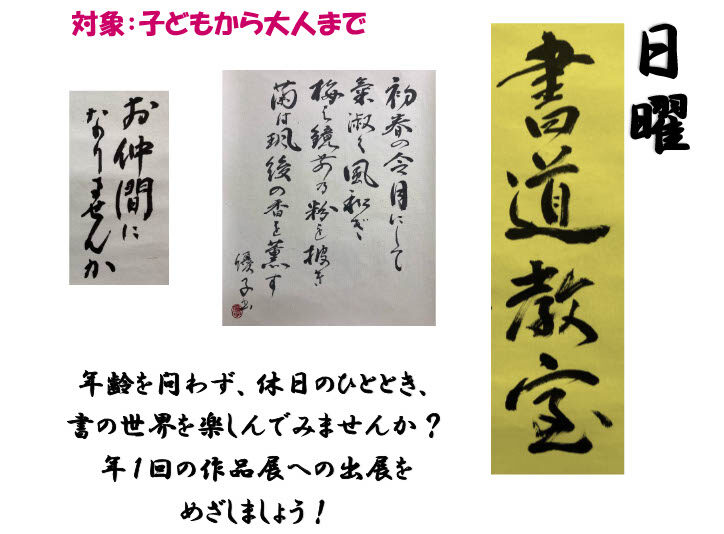 対象：子どもから大人まで
日曜
書道教室
初春の令月にして
氣淑く風和ぎ
梅は鏡前の粉を披き
蘭は珮後の香を薫す
優子書
お仲間に
なりませんか
年齢を問わず、休日のひととき、
書の世界を楽しんでみませんか？
年１回の作品展への出展を
めざしましょう！